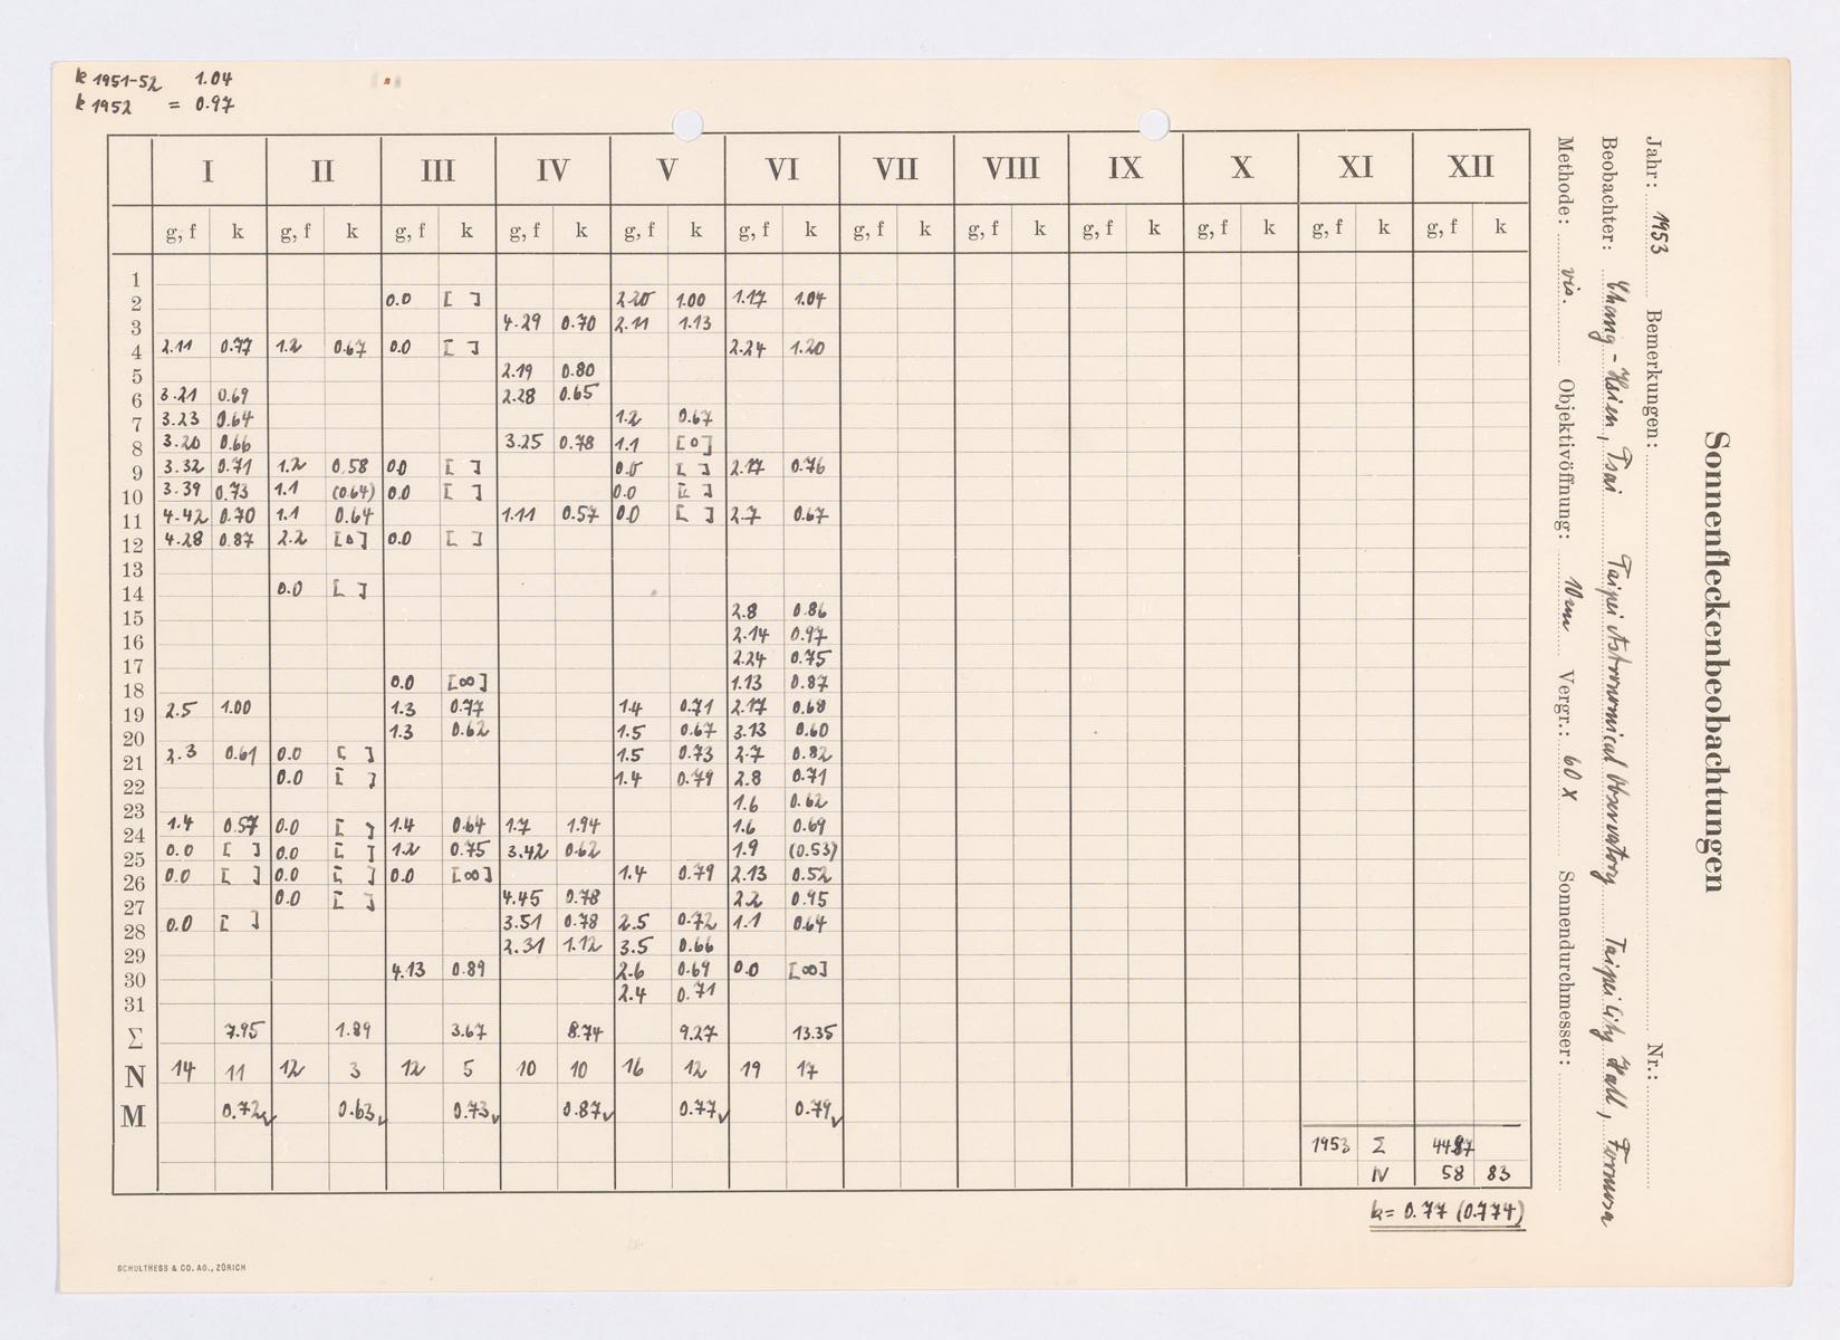 k 1951-52 1.04
k 1952 = 0.97
Sonnenfleckenbeobachtungen
Jahr: 1953 Bemerkungen: Nr.:
Beobachter: Chang-Hsien, Tsai Taipei Astronomical Observatory Taipei City Hall, Formosa
Methode: vis. Objektivöffnung: 10 cm Vergr.: 60 X Sonnendurchmesser:
I II III IV V VI VII VIII IX X XI XII
g, f k g, f k g, f k g, f k g, f k g, f k g, f k g, f k g, f k g, f k g, f k g, f k
1
2 0.0 [ ] 2.20 1.00 1.17 1.04
3 4.29 0.70 2.11 1.13
4 2.11 0.77 1.2 0.67 0.0 [ ] 2.24 1.20
5 2.19 0.80
6 3.21 0.69 2.28 0.65
7 3.23 0.64 1.2 0.67
8 3.20 0.66 3.25 0.78 1.1 [0]
9 3.32 0.71 1.2 0.58 0.0 [ ] 0.0 [ ] 2.17 0.76
10 3.39 0.73 1.1 (0.64) 0.0 [ ] 0.0 [ ]
11 4.42 0.70 1.1 0.64 1.11 0.57 0.0 [ ] 2.7 0.67
12 4.28 0.87 2.2 [0] 0.0 [ ]
13
14 0.0 [ ]
15 2.8 0.86
16 2.14 0.97
17 2.24 0.75
18 0.0 [∞] 1.13 0.87
19 2.5 1.00 1.3 0.77 1.4 0.71 2.17 0.68
20 1.3 0.62 1.5 0.67 3.13 0.60
21 2.3 0.61 0.0 [ ] 1.5 0.73 2.7 0.82
22 0.0 [ ] 1.4 0.79 2.8 0.71
23 1.6 0.62
24 1.4 0.57 0.0 [ ] 1.4 0.64 1.7 1.94 1.6 0.69
25 0.0 [ ] 0.0 [ ] 1.2 0.75 3.42 0.62 1.9 (0.53)
26 0.0 [ ] 0.0 [ ] 0.0 [∞] 1.4 0.79 2.13 0.52
27 0.0 [ ] 4.45 0.78 2.2 0.95
28 0.0 [ ] 3.51 0.78 2.5 0.72 1.1 0.64
29 2.31 1.12 3.5 0.66
30 4.13 0.89 2.6 0.69 0.0 [∞]
31 2.4 0.71
Σ 7.95 1.89 3.67 8.74 9.27 13.35
N 14 11 12 3 12 5 10 10 16 12 19 17
M 0.72 0.63 0.73 0.87 0.77 0.79
1953 Σ 44.87
N 58 83
k = 0.77 (0.774)
SCHULTHESS & CO. AG., ZÜRICH